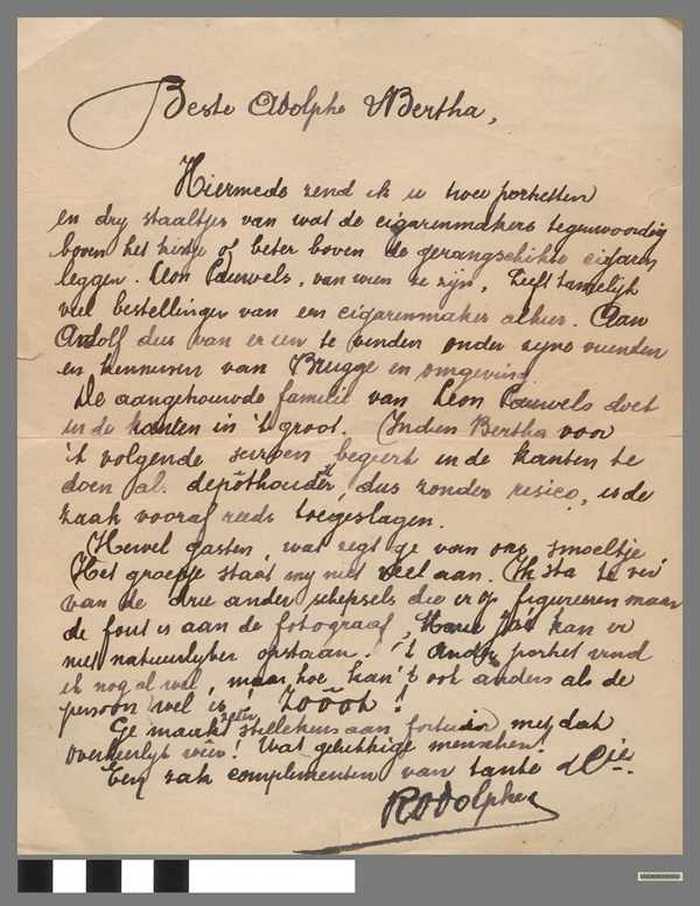 Beste Adolphe & Bertha,
Hiermede zend ik u twee portretten
en dry staaltjes van wat de cigarenmakers tegenwoordig
boven het kistje of beter boven de gerangschikte cigaren
leggen. Leon Pauwels, van wien ze zyn, heeft tamelijk
veel bestellingen van een cigarenmaker alhier. Aan
Adolf dus van er een te vinden onder zyne vrienden
en kennissen van Brugge en omgeving.
De aangetrouwde familie van Leon Pauwels doet
in de kanten in 't groot. Indien Bertha voor
't volgende seizoen begeert in de kanten te
doen al. depôthouder, dus zonder risico, is de
zaak vooraf reeds toegeslagen.
Hewel gasten, wat zegt ge van ons smoeltje
Het groepje staat my niet veel aan. Ik sta te ver
van de drie ander schepsels die er op figureeren maar
de fout is aan de fotograaf, kan er
niet natuurlyker opstaan. 't Ander portret vind
ik nog al wel, maar hoe kan 't ook anders als de
persoon wel is! Zoôôt!
Ge maakt zeker stillekens aan fortuin met dat
overheerlyk weer! Wat gelukkige menschen!
Een zak complimenten van tante & Cie.
Rodolphe